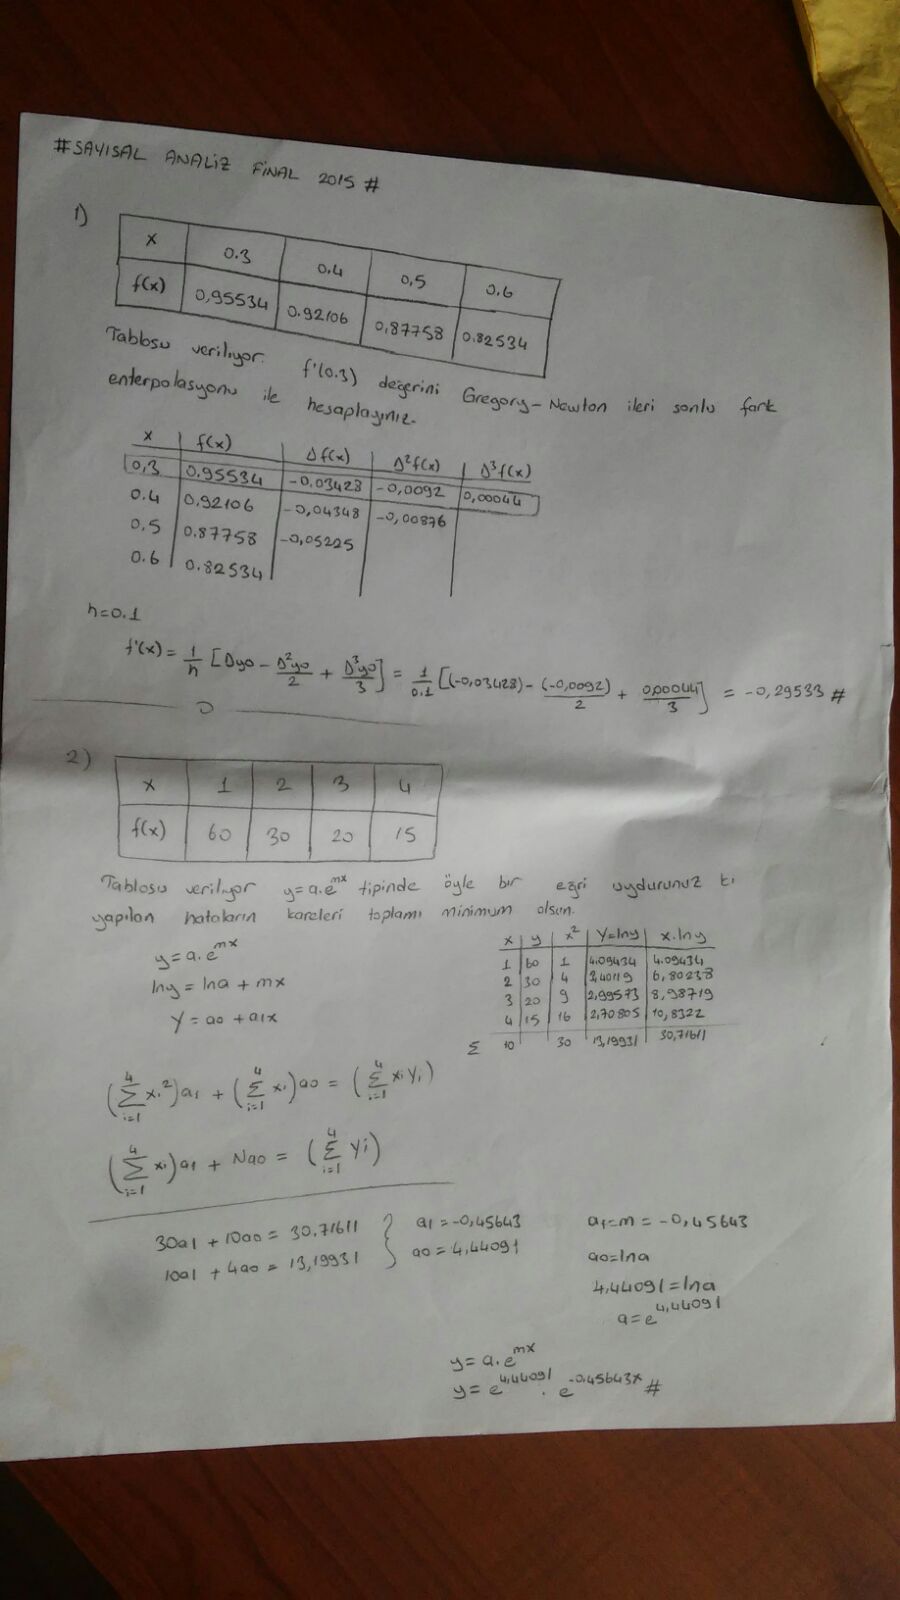 #SAYISAL ANALİZ FİNAL 2015 #
1)
x 0.3 0.4 0,5 0.6
f(x) 0,95534 0.92106 0,87758 0.82534
Tablosu veriliyor. f'(0.3) değerini Gregory-Newton ileri sonlu fark
enterpolasyonu ile hesaplayınız.
x f(x) Δf(x) Δ²f(x) Δ³f(x)
0,3 0.95534 -0,03428 -0,0092 0,00044
0.4 0,92106 -0,04348 -0,00876
0,5 0.87758 -0,05225
0.6 0.82534
h=0.1
f'(x) = 1/h [Δy0 - Δ²y0/2 + Δ³y0/3] = 1/0.1 [(-0,03428) - (-0,0092)/2 + 0,00044/3] = -0,29533 #
2)
x 1 2 3 4
f(x) 60 30 20 15
Tablosu veriliyor y=a.e^mx tipinde öyle bir eğri uydurunuz ki
yapılan hataların kareleri toplamı minimum olsun.
y=a.e^mx
lny = lna + mx
Y = a0 + a1x
x y x² Y=lny x.lny
1 60 1 4.09434 4.09434
2 30 4 3,40119 6,80238
3 20 9 2,99573 8,98719
4 15 16 2,70805 10,8322
Σ 10 30 13,19931 30,71611
(Σ_{i=1}^{4} xi²)a1 + (Σ_{i=1}^{4} xi)a0 = (Σ_{i=1}^{4} xiYi)
(Σ_{i=1}^{4} xi)a1 + Na0 = (Σ_{i=1}^{4} Yi)
30a1 + 10a0 = 30,71611 } a1=-0,45643
10a1 + 4a0 = 13,19931 a0=4,44091
a1=m = -0,45643
a0=lna
4,44091=lna
a=e^4,44091
y=a.e^mx
y=e^4,44091 . e^-0,45643x #